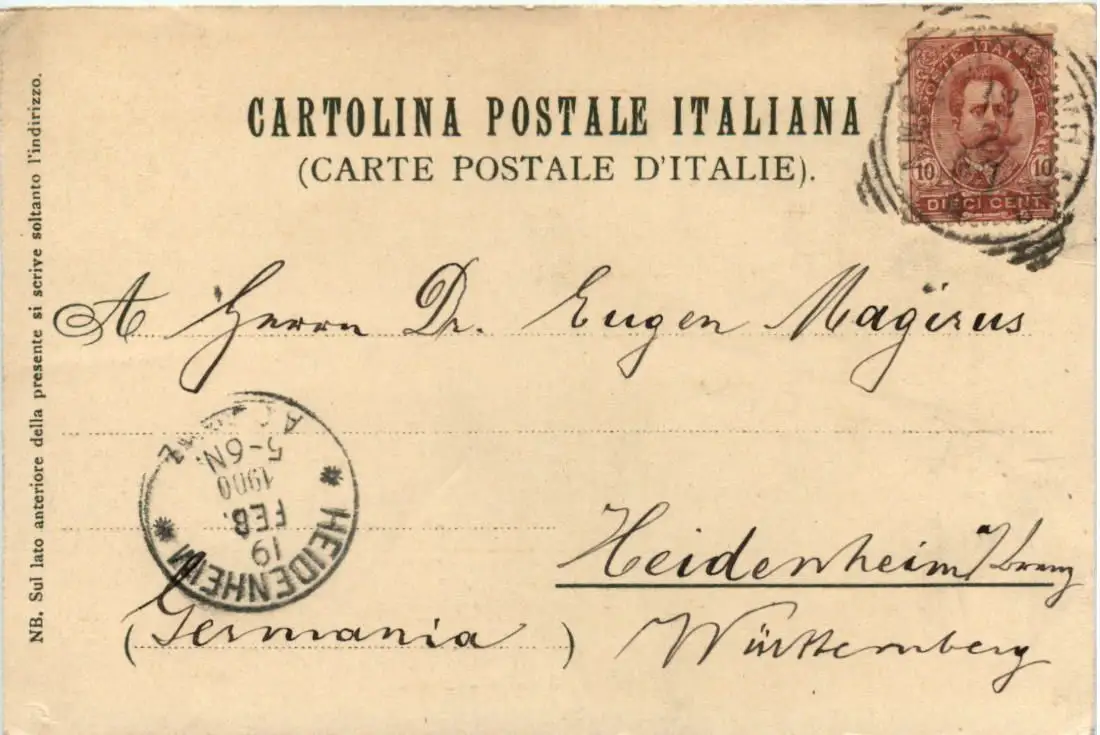 CARTOLINA POSTALE ITALIANA
(CARTE POSTALE D'ITALIE).
POSTE ITALIANE
10 10
DIECI CENT.
NB. Sul lato anteriore della presente si scrive soltanto l'indirizzo.
A Herrn Dr. Eugen Magirus
HEIDENHEIM
19
FEB.
1900
5-6N.
Heidenheim a/Brenz
(Germania)
Württemberg